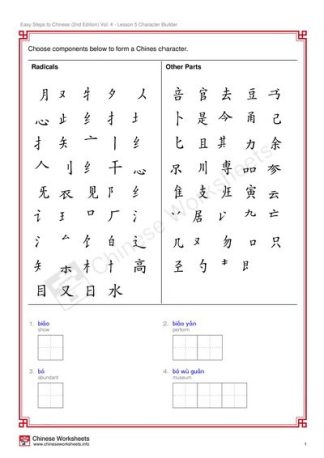 Easy Steps to Chinese (2nd Edition) Vol. 4 - Lesson 5 Character Builder
Choose components below to form a Chines character.
Radicals
月 又 牜 夕 人
心 止 纟 扌 土
扌 矢 亠 丨 纟
人 刂 纟 干 心
旡 衣 见 阝 纟
讠 王 口 厂 氵
氵 𠂉 饣 白 辶
矢 木 十 高
目 又 日 水
Other Parts
音 官 去 豆 丂
卜 是 今 甬 己
匕 且 其 力 余
尔 川 専 品 参
隹 支 班 寅 云
丷 居 讠 九 亡
几 又 勿 口 只
圣 勺 艮
Chinese Worksheets
1. biǎo
show
2. biǎo yǎn
perform
3. bó
abundant
4. bó wù guǎn
museum
Chinese Worksheets
www.chineseworksheets.info
1